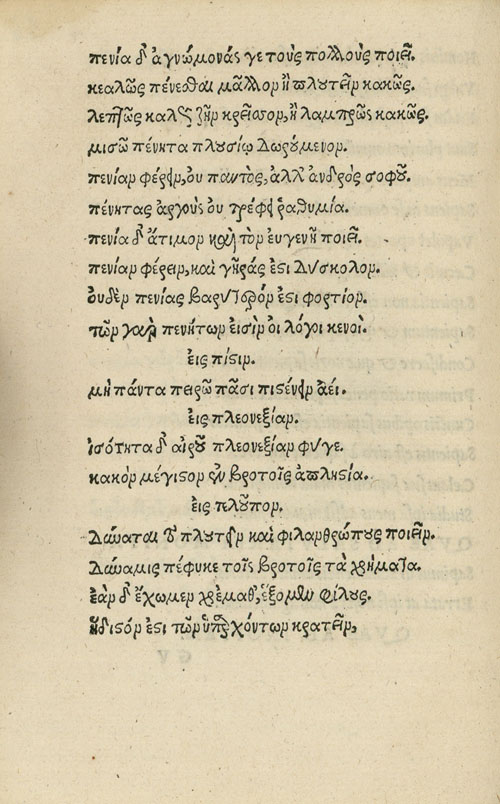 πενία δ᾽ ἀγνώμονάς γε τοὺς πολλοὺς ποιεῖ.
κεαλῶς πένεσθαι μᾶλλον ἢ πλουτεῖν κακῶς.
λεπτῶς καλῶς ζῆν κρεῖσσον, ἢ λαμπρῶς κακῶς.
μισῶ πένητα πλουσίῳ δωρούμενον.
πενίαν φέρειν, οὐ παντὸς, ἀλλ᾽ ἀνδρὸς σοφοῦ.
πένητας ἀργοὺς οὐ τρέφει ῥαθυμία.
πενία δ᾽ ἄτιμον καὶ τὸν εὐγενῆ ποιεῖ.
πενίαν φέρειν, καὶ γῆράς ἐστι δύσκολον.
οὐδὲν πενίας βαρύτερόν ἐστι φορτίον.
τῶν γὰρ πενήτων εἰσὶν οἱ λόγοι κενοί.
εἰς πίστιν.
μὴ πάντα πειρῶ πᾶσι πιστεύειν ἀεί.
εἰς πλεονεξίαν.
ἰσότητα δ᾽ αἱροῦ πλεονεξίαν φύγε.
κακὸν μέγιστον ἐν βροτοῖς ἀπληστία.
εἰς πλοῦτον.
Δύναται τὸ πλουτεῖν καὶ φιλανθρώπους ποιεῖν.
Δύναμις πέφυκε τοῖς βροτοῖς τὰ χρήματα.
ἐὰν δ᾽ ἔχωμεν χρήμαθ᾽, ἕξομεν φίλους.
ἥδιστόν ἐστι τῶν ὑπαρχόντων κρατεῖν,